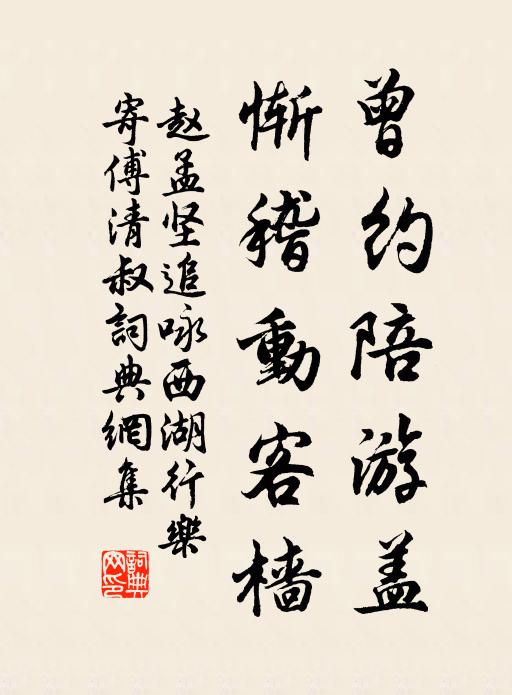 曾约陪游盖
惭稽動客樯
赵孟坚追咏西湖行樂
寄傅清叔詞典網集
詞典网印